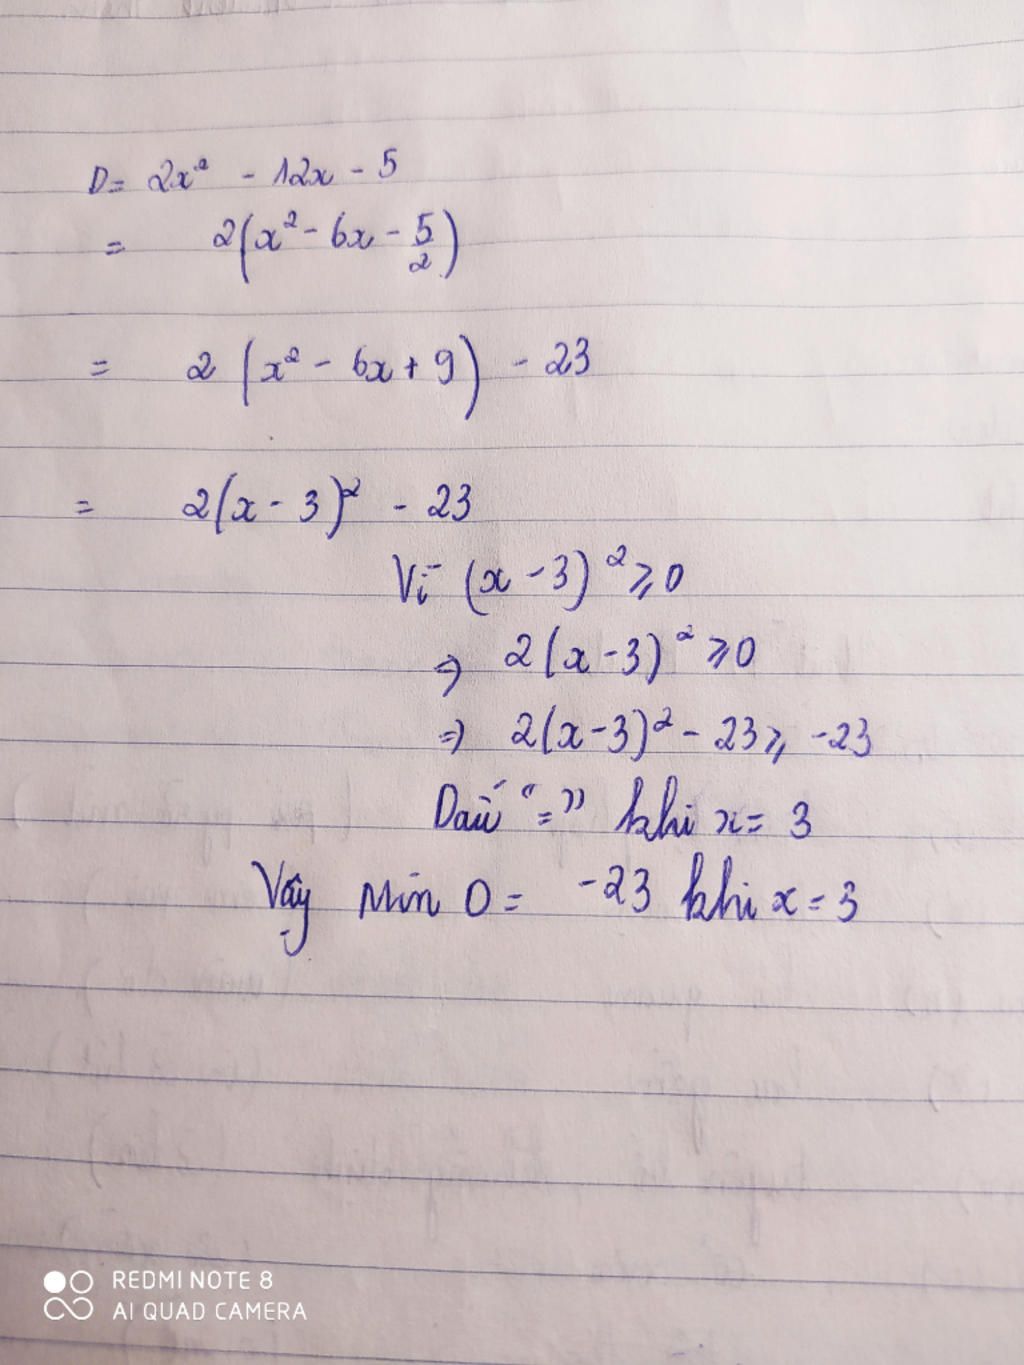 D= 2x² - 12x - 5
= 2(x² - 6x - 5/2)
= 2 (x² - 6x + 9) - 23
= 2(x - 3)² - 23
Vì (x - 3)² ⩾ 0
⇒ 2(x - 3)² ⩾ 0
⇒ 2(x - 3)² - 23 ⩾ -23
Dấu "=" khi x = 3
Vậy Min D = -23 khi x = 3
REDMI NOTE 8
AI QUAD CAMERA